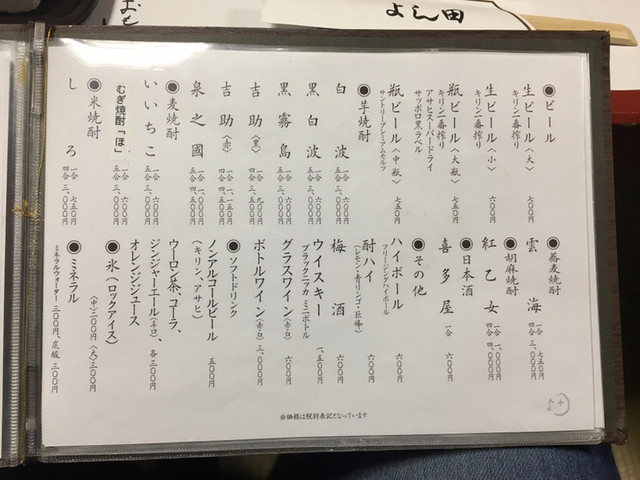 よし田
●ビール
生ビール〈大〉 七〇〇円
キリン一番搾り
生ビール〈小〉 六〇〇円
キリン一番搾り
瓶ビール〈大瓶〉 七五〇円
キリン一番搾り
アサヒスーパードライ
サッポロ黒ラベル
瓶ビール〈中瓶〉 七五〇円
サントリープレミアムモルツ
●芋焼酎
白波 一合 六〇〇円 四合 三、〇〇〇円
黒白波 一合 六〇〇円 四合 三、〇〇〇円
黒霧島 一合 六〇〇円 四合 三、〇〇〇円
吉助〈黒〉 一合 九〇〇円
吉助〈赤〉
泉之國
●麦焼酎
いいちこ 一合 六〇〇円 四合 三、〇〇〇円
むぎ焼酎「ほ」 一合 六〇〇円 四合 三、〇〇〇円
●米焼酎
しろ 一合 七五〇円 四合 三、〇〇〇円
●蕎麦焼酎
雲海 一合 七五〇円 四合 三、〇〇〇円
●胡麻焼酎
紅乙女 一合 一、〇〇〇円
●日本酒
喜多屋 一合 六〇〇円
●その他
ハイボール 六〇〇円
フリージングハイボール
酎ハイ 六〇〇円
(レモン・青リンゴ・巨峰)
梅酒 六〇〇円
ウイスキー 一、五〇〇円
ブラックニッカ ミニボトル
グラスワイン(赤・白) 六〇〇円
ボトルワイン(赤・白) 三、〇〇〇円
●ソフトドリンク
ノンアルコールビール 五〇〇円
(キリン、アサヒ)
ウーロン茶、コーラ、
ジンジャーエール(辛口)、各三〇〇円
オレンジジュース
●氷(ロックアイス)
〈中〉二〇〇円 〈大〉三〇〇円
●ミネラル
ミネラルウォーター 三〇〇円、炭酸 三〇〇円
※価格は税別表記となっています